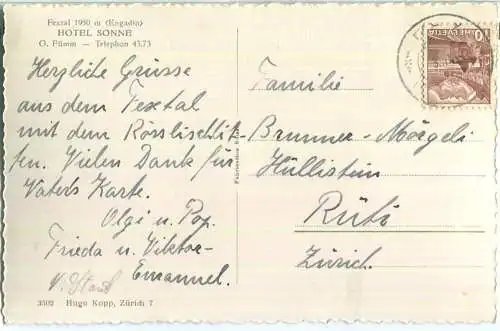 Fextal 1950 m (Engadin)
HOTEL SONNE
O. Fümm — Telephon 4373
HELVETIA
10
Herzliche Grüsse
aus dem Fextal
mit dem Rösslischlit-
ten. Vielen Dank für
Vaters Karte.
Olgi u. Pop.
Frieda u. Viktor
Emanuel.
Familie
Brunner-Mörgeli
Hüllistein
Rüti
Zürich.
3502 Hugo Kopp, Zürich 7